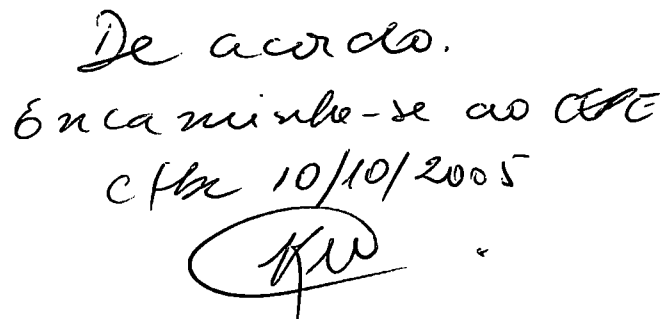 De acordo.
Encaminhe-se ao CEPE
Ctba 10/10/2005